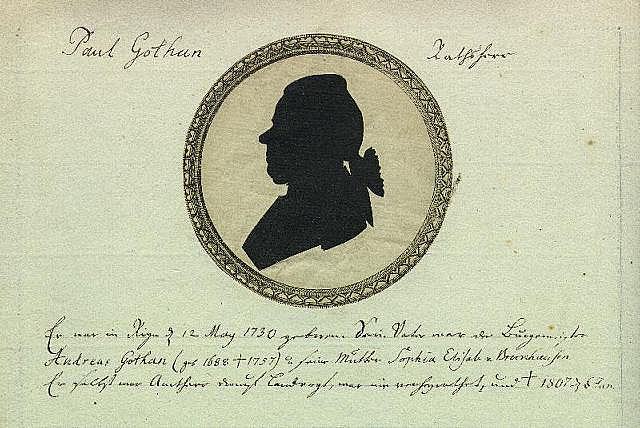 Paul Gothan
Rathsherr
Er war in Riga d 12 May 1730 geboren. Sein Vater war der Burgemeister
Andreas Gothan (geb 1688 † 1757) & seine Mutter Sophia Elisab v Brevern
Er selbst war Amtherr Landvogt, war nie verheyrathet, und † 1807 d 8 Jan.